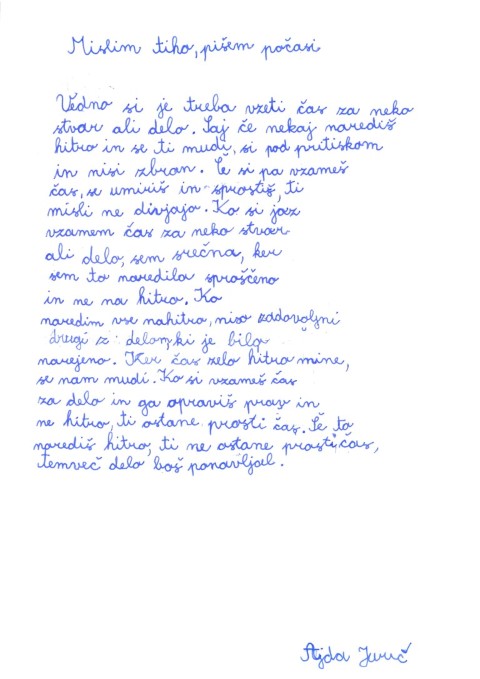 Mislim tiho, pišem počasi
Vedno si je treba vzeti čas za neko
stvar ali delo. Saj če nekaj narediš
hitro in se ti mudi, si pod pritiskom
in nisi zbran. Če si pa vzameš
čas, se umiriš in sprostiš, ti
misli ne divjajo. Ko si jaz
vzamem čas za neko stvar
ali delo, sem srečna, ker
sem to naredila sproščeno
in ne na hitro. Ko
naredim vse nahitro, niso zadovoljni
drugi z delom, ki je bilo
narejeno. Ker čas zelo hitro mine,
se nam mudi. Ko si vzameš čas
za delo in ga opraviš prav in
ne hitro, ti ostane prosti čas. Če to
narediš hitro, ti ne ostane prosti čas,
temveč delo boš ponavljal.
Ajda